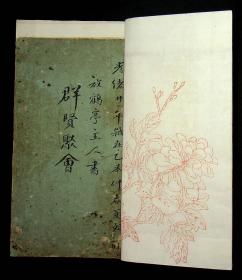 光緒廿一年歲在乙未仲春
放鶴亭主人書
群賢聚會